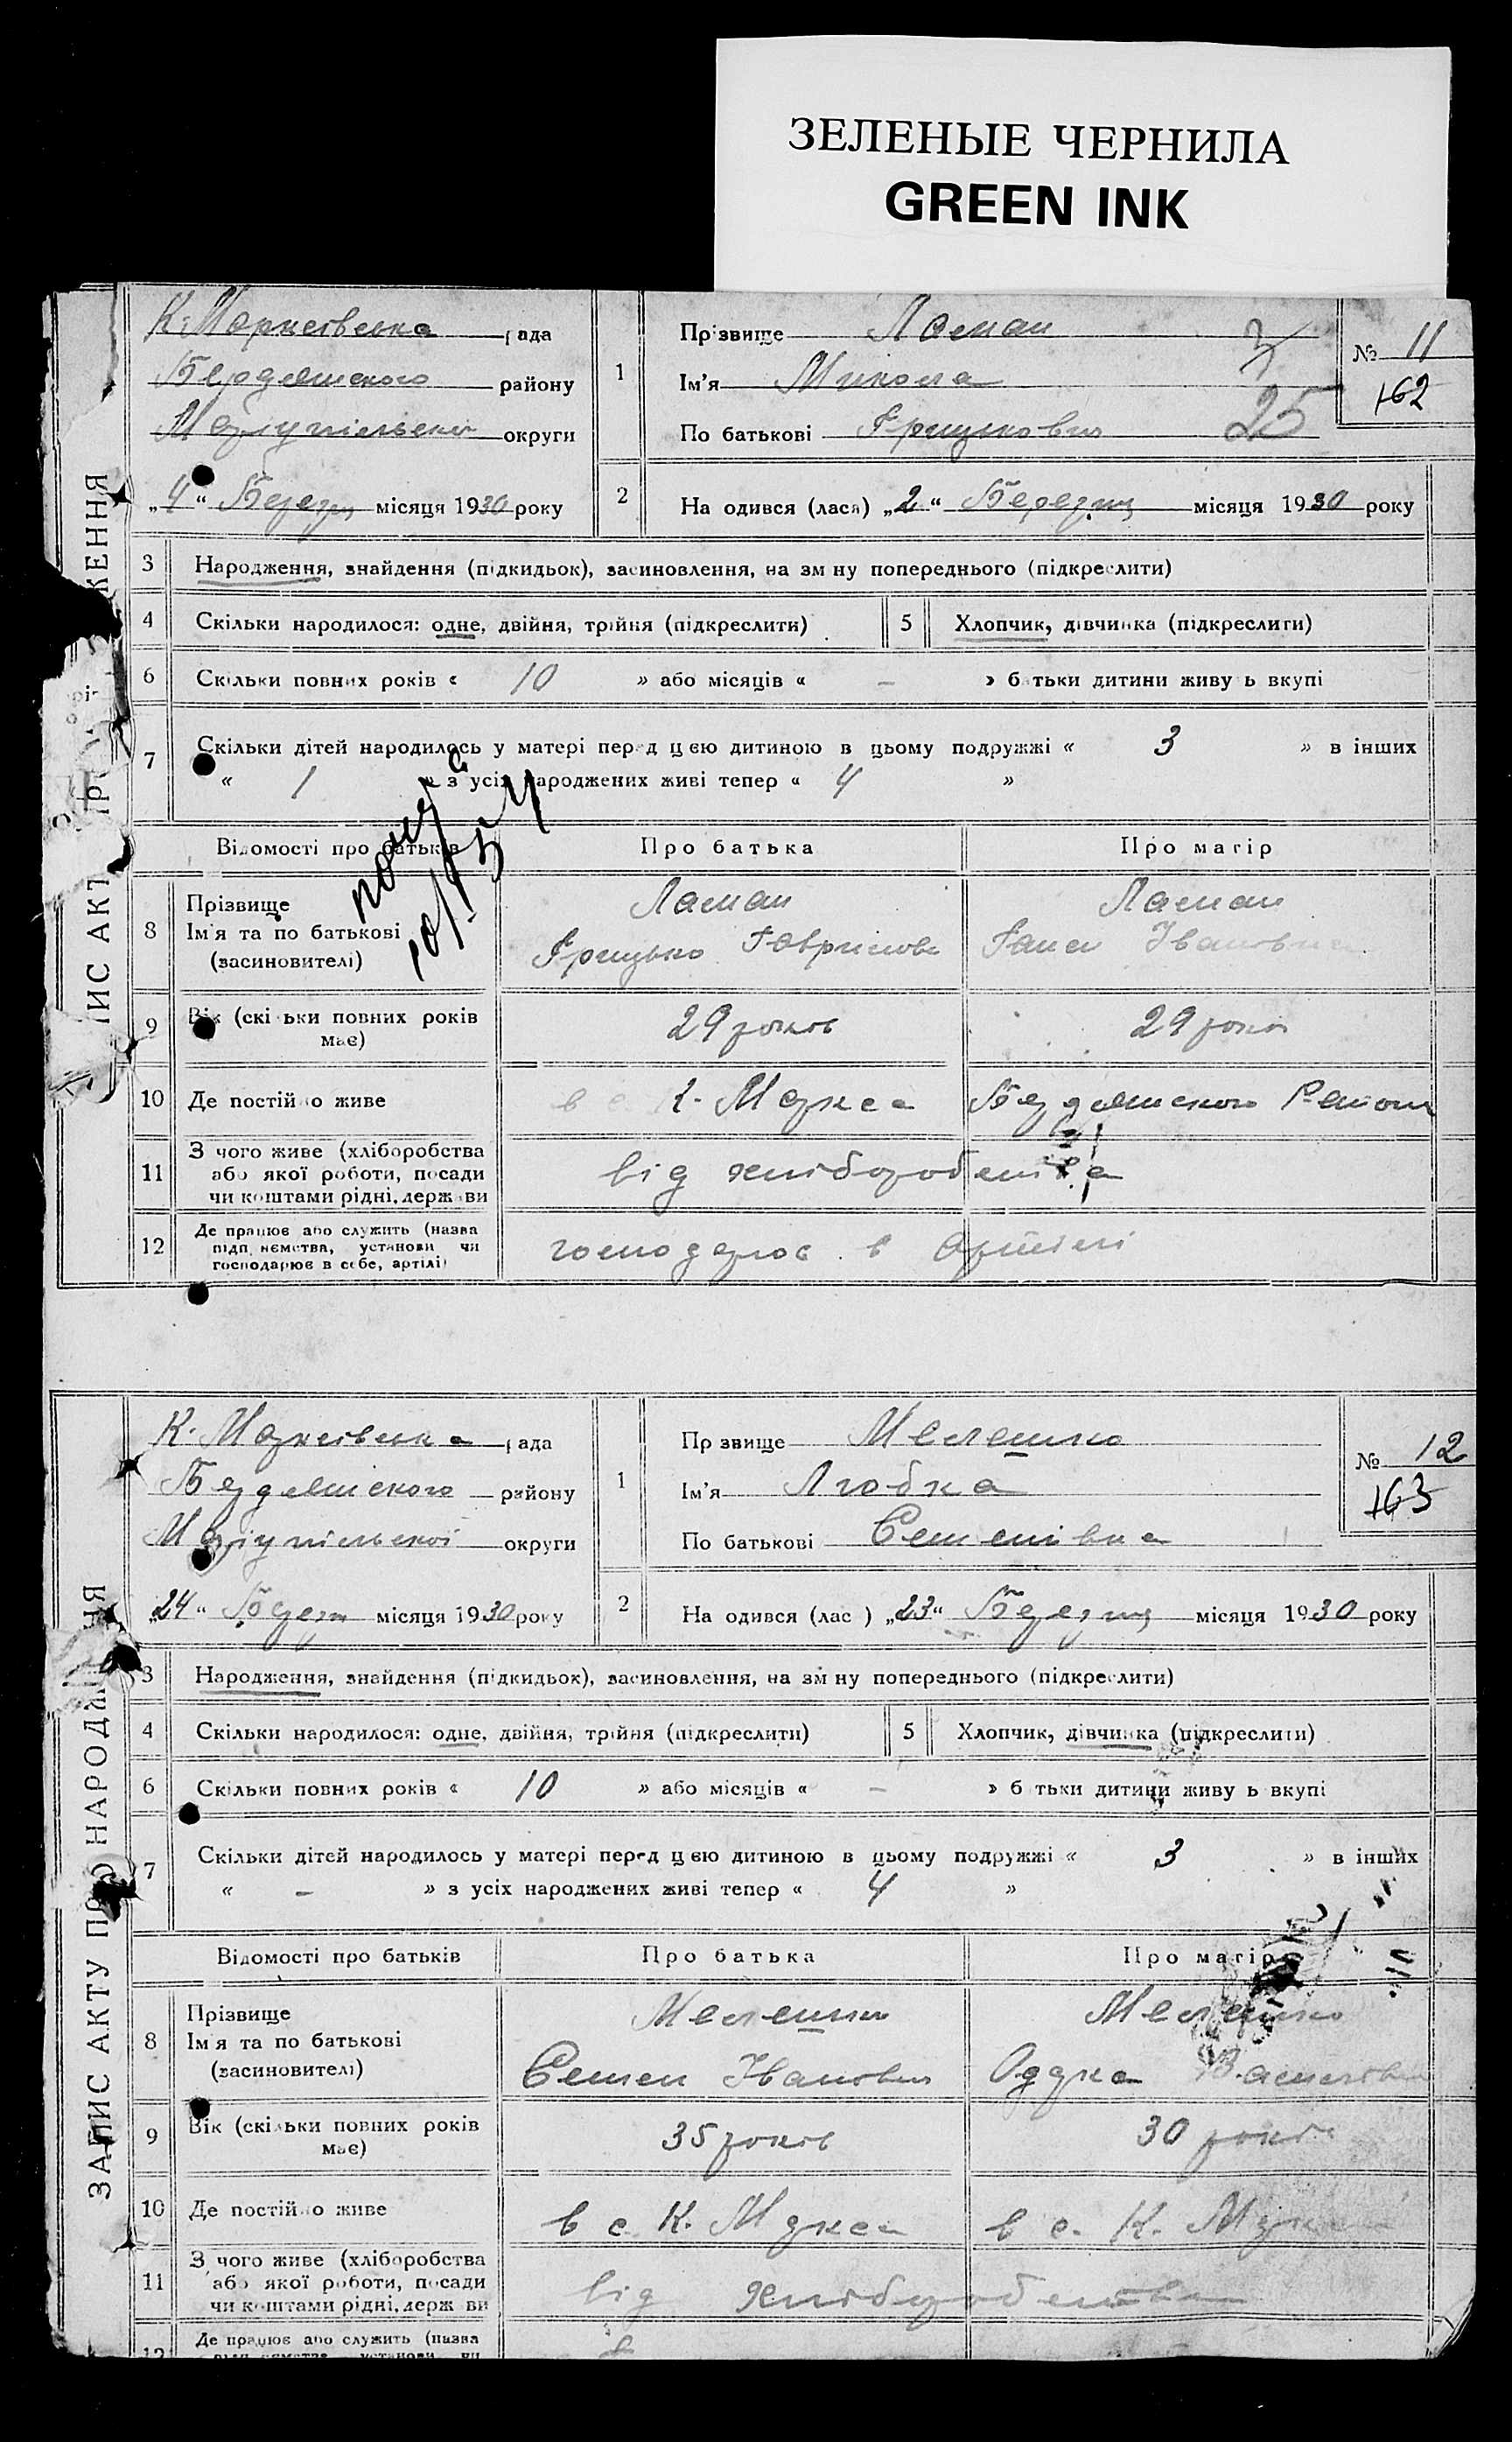 ЗЕЛЕНЫЕ ЧЕРНИЛА
GREEN INK
К. Марксівська рада
Бердянського району
Маріупільської округи
„4“ Березня місяця 1930 року
1
Прізвище Ламан
Ім'я Микола
По батькові Грицькович
25
№ 11
162
2 На одився (лася) „2“ Березня місяця 1930 року
3 Народження, знайдення (підкидьок), засиновлення, на зм ну попереднього (підкреслити)
4 Скільки народилося: одне, двійня, трійня (підкреслити)
5 Хлопчик, дівчинка (підкреслити)
6 Скільки повних років « 10 » або місяців « – » б тьки дитини живу ь вкупі
7 Скільки дітей народилось у матері перед цею дитиною в цьому подружжі « 3 » в інших
« 1 » з усіх народжених живі тепер « 4 »
Відомості про батьків
Про батька
Про матір
8 Прізвище
Ім'я та по батькові
(засиновителі)
Ламан
Грицько Гаврилов
Ламан
Ганна Івановна
9 Вік (скі ьки повних років
має)
29 років
29 років
10 Де постій о живе
в с К. Маркса Бердянського Району
11 З чого живе (хліборобства
або якої роботи, посади
чи коштами рідні, держави
від хліборобства
12 Де працює або служить (назва
підп иємства, установи чи
господарює в себе, артілі)
господарює в Артілі
К. Марксівська рада
Бердянського району
Маріупільської округи
„24“ Березня місяця 1930 року
1
Пр звище Мелешко
Ім'я Любка
По батькові Семенівна
№ 12
163
2 На одився (лас ) „23“ Березня місяця 1930 року
3 Народження, знайдення (підкидьок), засиновлення, на зм ну попереднього (підкреслити)
4 Скільки народилося: одне, двійня, трійня (підкреслити)
5 Хлопчик, дівчинка (підкреслити)
6 Скільки повних років « 10 » або місяців « – » б тьки дитини живу ь вкупі
7 Скільки дітей народилось у матері перед цею дитиною в цьому подружжі « 3 » в інших
« – » з усіх народжених живі тепер « 4 »
Відомості про батьків
Про батька
Про матір
8 Прізвище
Ім'я та по батькові
(засиновителі)
Мелешко
Семен Іванович
Мелешко
Одарка Василівна
9 Вік (скільки повних років
має)
35 років
30 років
10 Де постій о живе
в с. К. Маркса
в с. К. Маркса
11 З чого живе (хліборобства
або якої роботи, посади
чи коштами рідні, держ ви
від хліборобства
12 Де працює або служить (назва
ЗАПИС АКТУ ПРО НАРОДЖЕННЯ